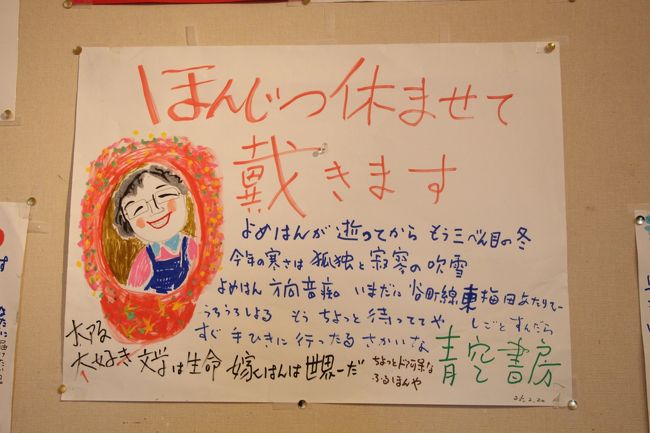 ほんじつ休ませて
戴きます
よめはんが逝ってから もう三べん目の冬
今年の寒さは 孤独と寂寥の吹雪
よめはん 方向音痴。いまだに 谷町線東梅田あたりで
うろうろしよる もうちょっと待っててや しごとすんだら
すぐ 手ひきに行ったるさかいな
大阪
大好き 文学は生命 嫁はんは世界一だ
ちょっとド阿呆な
ふるほんや
青空書房